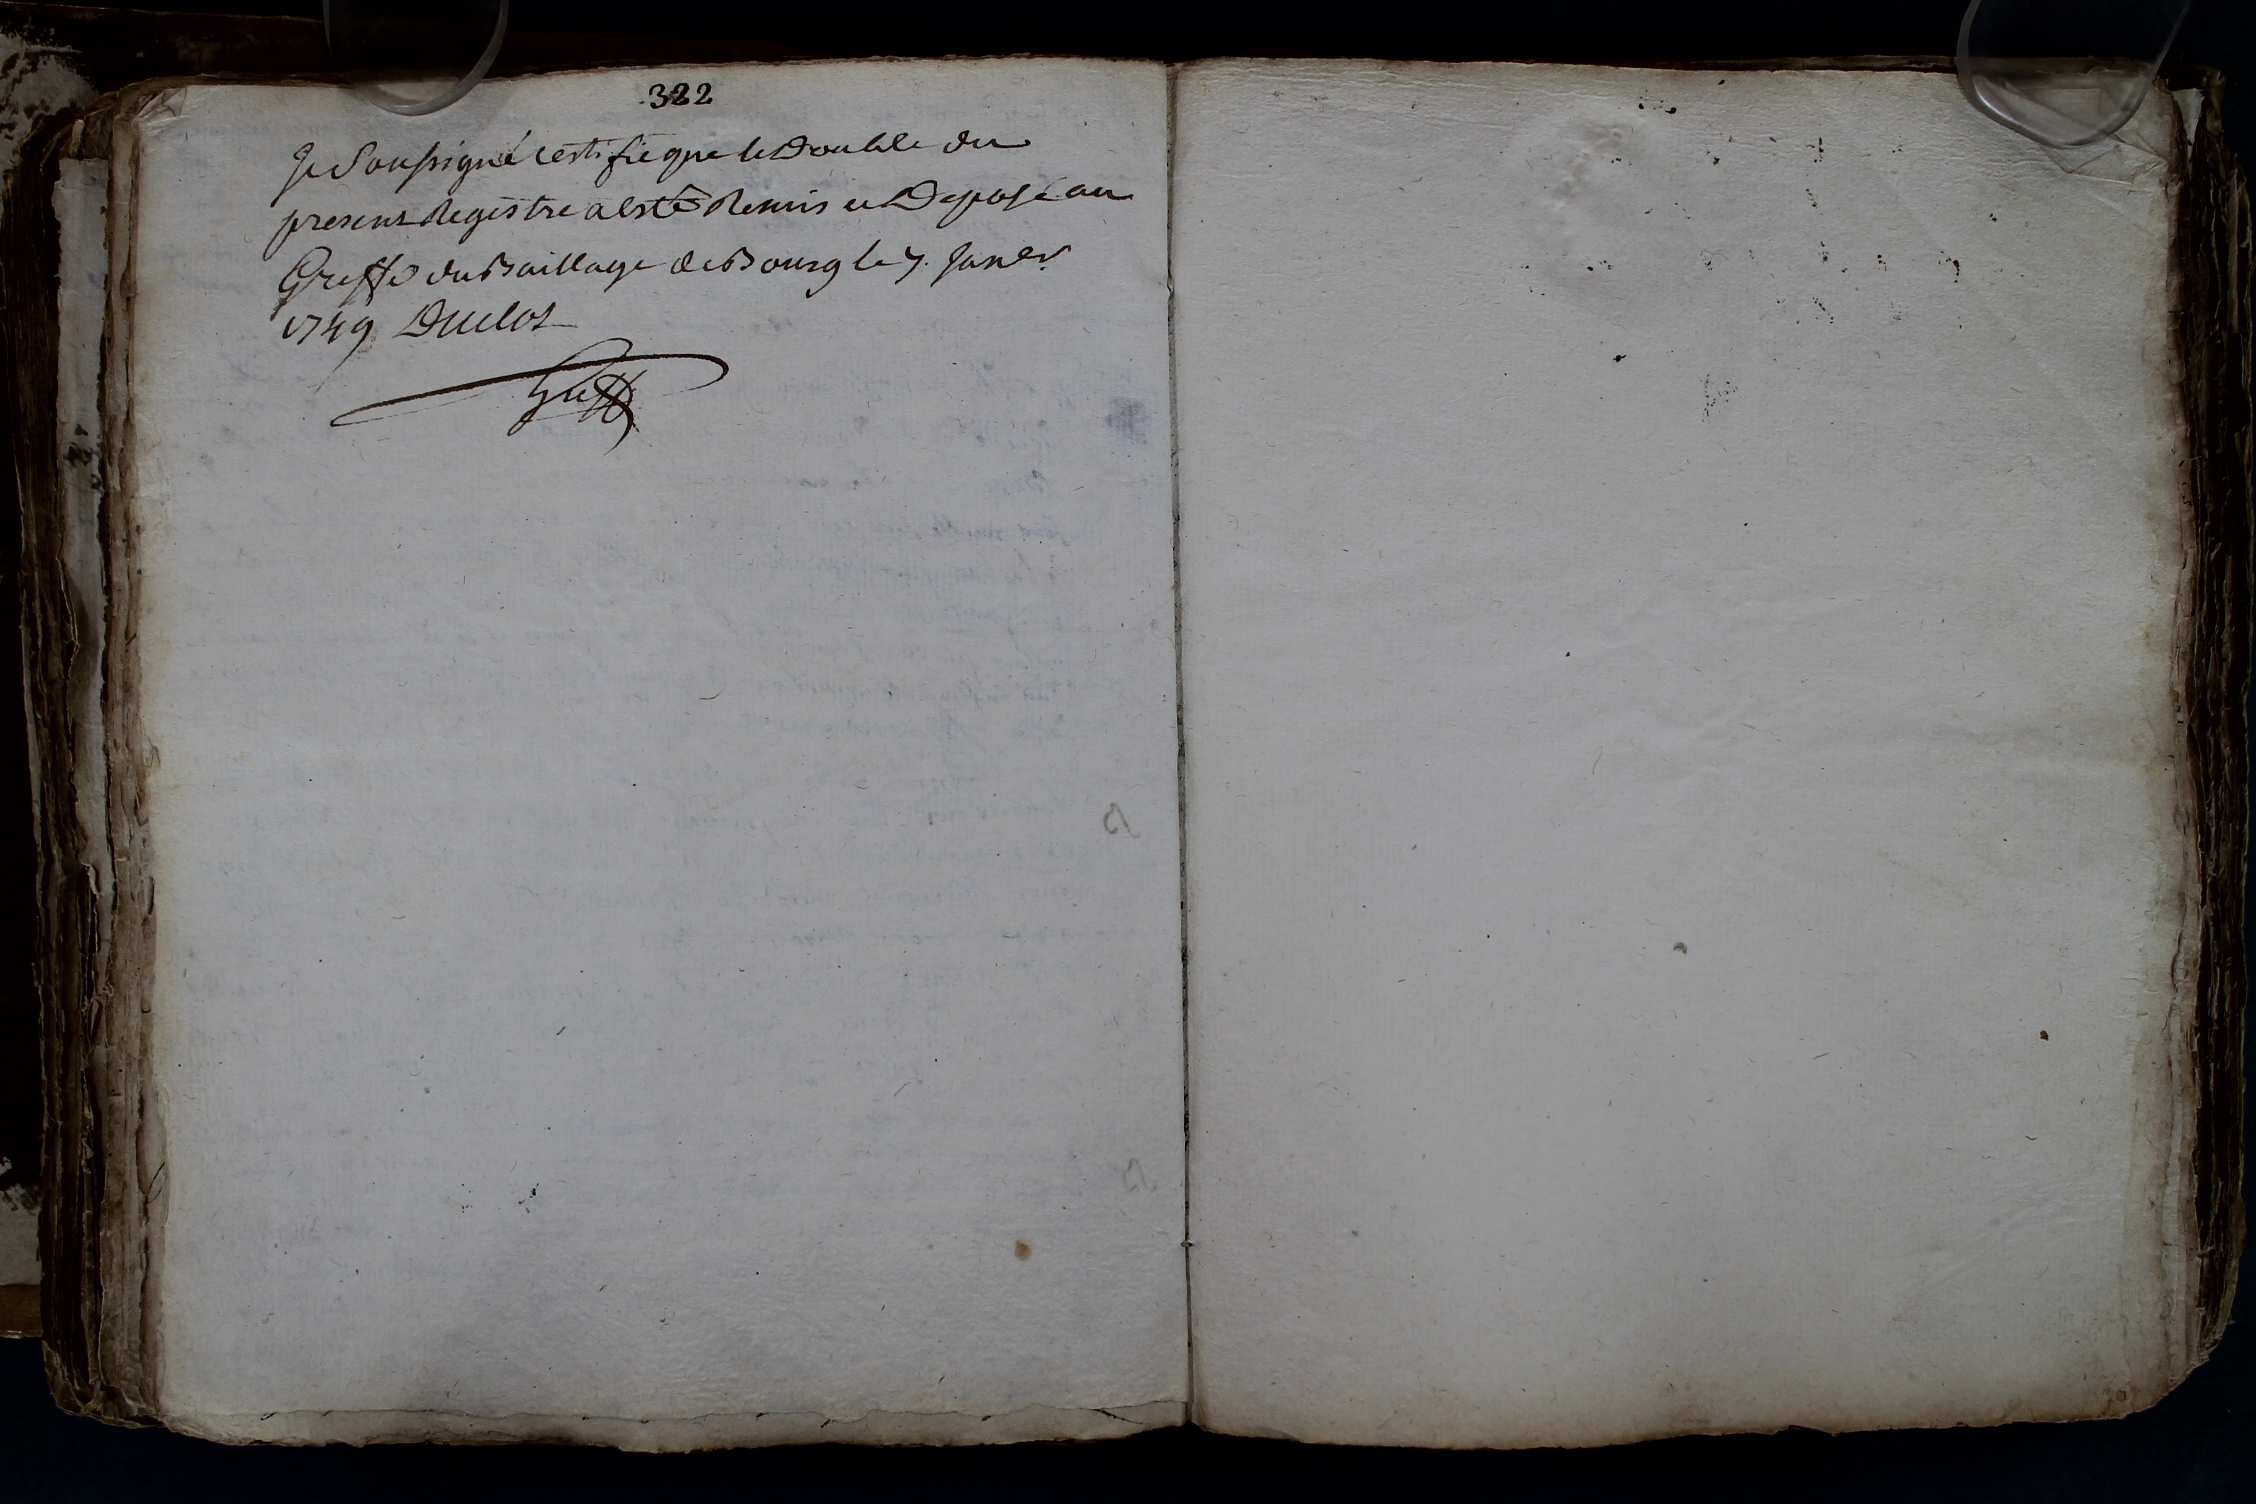 322
Je Soussigné certifie que le Double du
present Registre a esté Remis et Deposé au
Greffe du Baillage de Bourg le 7. Janer
1749 Duclos
Greff